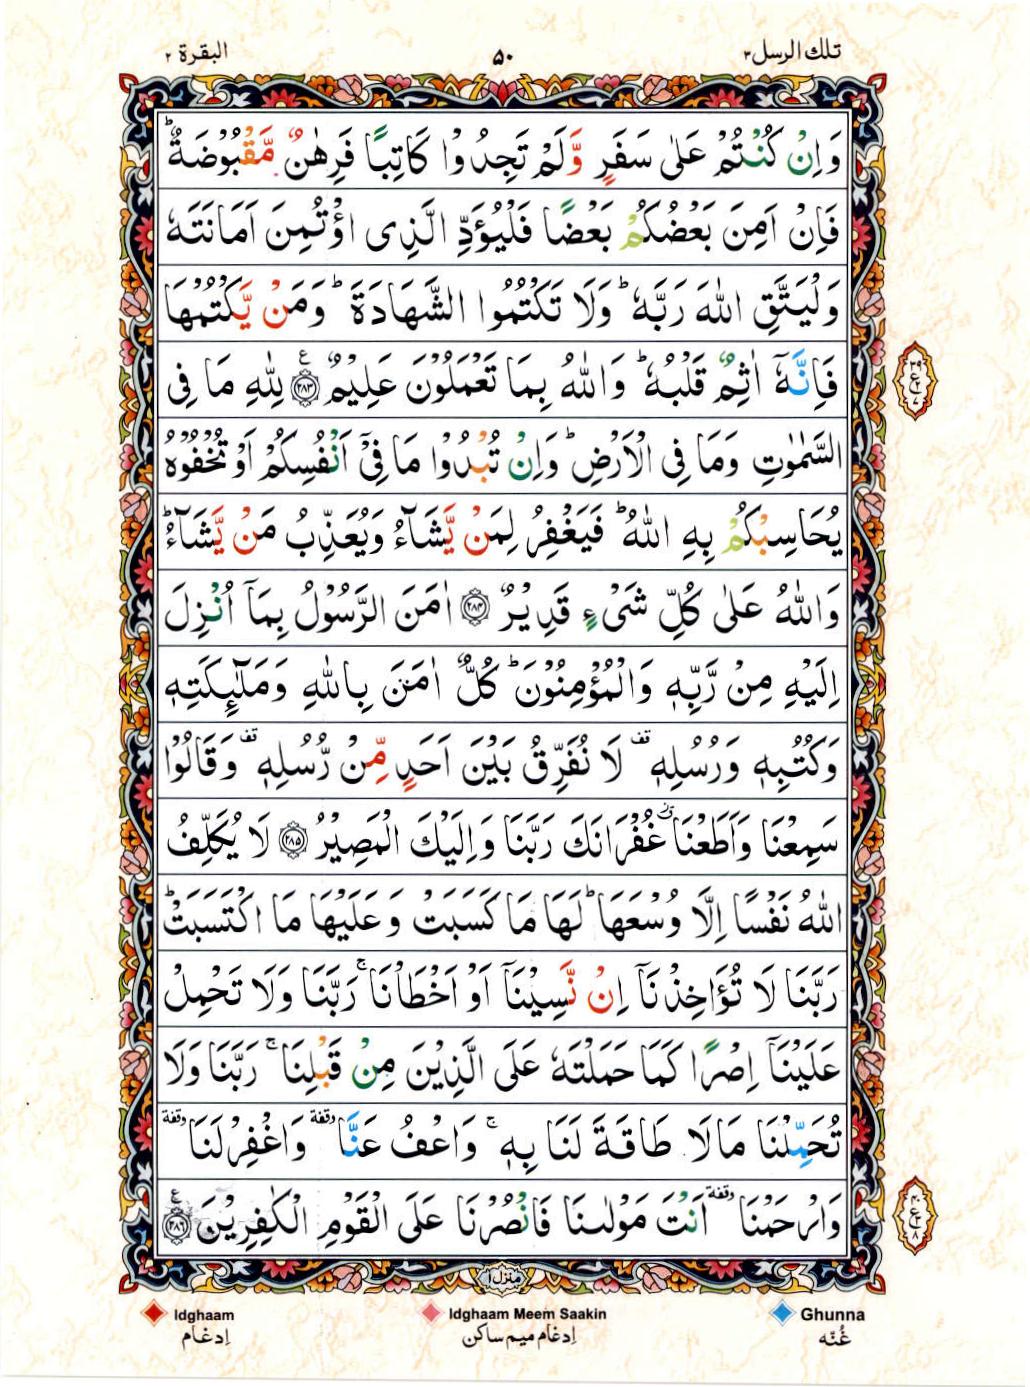 تلك الرسل ۳
۵۰
البقرة ۲
وَاِنْ كُنْتُمْ عَلٰى سَفَرٍ وَّلَمْ تَجِدُوْا كَاتِبًا فَرِهٰنٌ مَّقْبُوْضَةٌ ؕ
فَاِنْ اَمِنَ بَعْضُكُمْ بَعْضًا فَلْيُؤَدِّ الَّذِى اؤْتُمِنَ اَمَانَتَهٗ
وَلْيَتَّقِ اللّٰهَ رَبَّهٗ ؕ وَلَا تَكْتُمُوا الشَّهَادَةَ ؕ وَمَنْ يَّكْتُمْهَا
فَاِنَّهٗۤ اٰثِمٌ قَلْبُهٗ ؕ وَاللّٰهُ بِمَا تَعْمَلُوْنَ عَلِيْمٌ ﴿۲۸۳﴾ ع لِلّٰهِ مَا فِى
السَّمٰوٰتِ وَمَا فِى الْاَرْضِ ؕ وَاِنْ تُبْدُوْا مَا فِىْۤ اَنْفُسِكُمْ اَوْ تُخْفُوْهُ
يُحَاسِبْكُمْ بِهِ اللّٰهُ ؕ فَيَغْفِرُ لِمَنْ يَّشَآءُ وَيُعَذِّبُ مَنْ يَّشَآءُ ؕ
وَاللّٰهُ عَلٰى كُلِّ شَىْءٍ قَدِيْرٌ ﴿۲۸۴﴾ اٰمَنَ الرَّسُوْلُ بِمَاۤ اُنْزِلَ
اِلَيْهِ مِنْ رَّبِّهٖ وَالْمُؤْمِنُوْنَ ؕ كُلٌّ اٰمَنَ بِاللّٰهِ وَمَلٰٓئِكَتِهٖ
وَكُتُبِهٖ وَرُسُلِهٖ قف لَا نُفَرِّقُ بَيْنَ اَحَدٍ مِّنْ رُّسُلِهٖ قف وَقَالُوْا
سَمِعْنَا وَاَطَعْنَا ز غُفْرَانَكَ رَبَّنَا وَاِلَيْكَ الْمَصِيْرُ ﴿۲۸۵﴾ لَا يُكَلِّفُ
اللّٰهُ نَفْسًا اِلَّا وُسْعَهَا ؕ لَهَا مَا كَسَبَتْ وَعَلَيْهَا مَا اكْتَسَبَتْ ؕ
رَبَّنَا لَا تُؤَاخِذْنَاۤ اِنْ نَّسِيْنَاۤ اَوْ اَخْطَاْنَا ۚ رَبَّنَا وَلَا تَحْمِلْ
عَلَيْنَاۤ اِصْرًا كَمَا حَمَلْتَهٗ عَلَى الَّذِيْنَ مِنْ قَبْلِنَا ۚ رَبَّنَا وَلَا
تُحَمِّلْنَا مَا لَا طَاقَةَ لَنَا بِهٖ ۚ وَاعْفُ عَنَّا وقفة وَاغْفِرْ لَنَا وقفة
وَارْحَمْنَا وقفة اَنْتَ مَوْلٰىنَا فَانْصُرْنَا عَلَى الْقَوْمِ الْكٰفِرِيْنَ ﴿۲۸۶﴾ ع
منزل ۱
Idghaam
Idghaam Meem Saakin
Ghunna
اِدغام
اِدغام میم ساکن
غُنّه